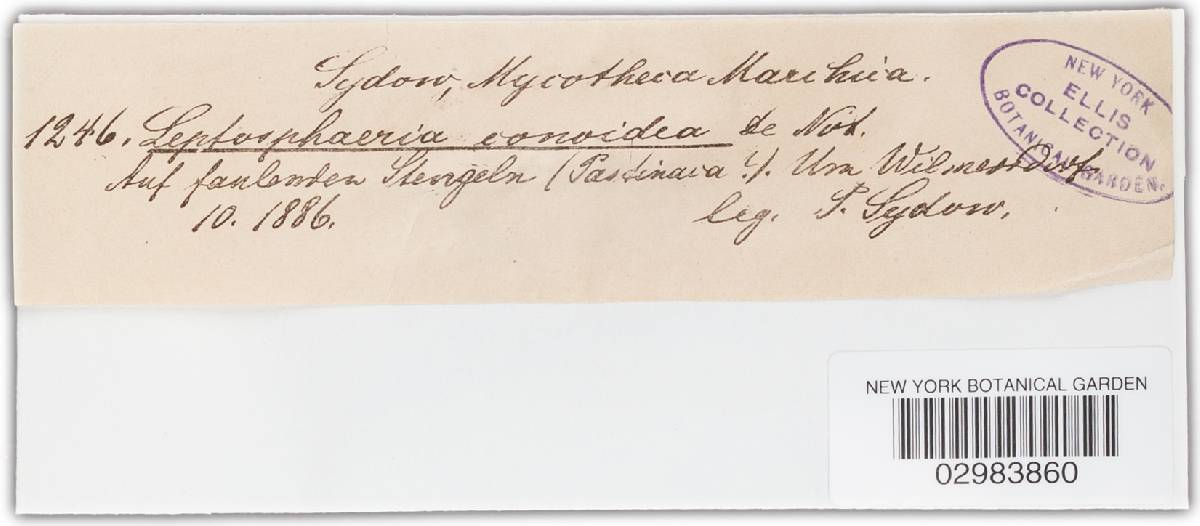 Sydow, Mycotheca Marchica.
1246. Leptosphaeria conoidea de Not.
Auf faulenden Stengeln (Pastinaca ?). Um Wilmersdorf.
10. 1886.
leg. P. Sydow.
NEW YORK
ELLIS
COLLECTION
BOTANICAL GARDEN.
NEW YORK BOTANICAL GARDEN
02983860